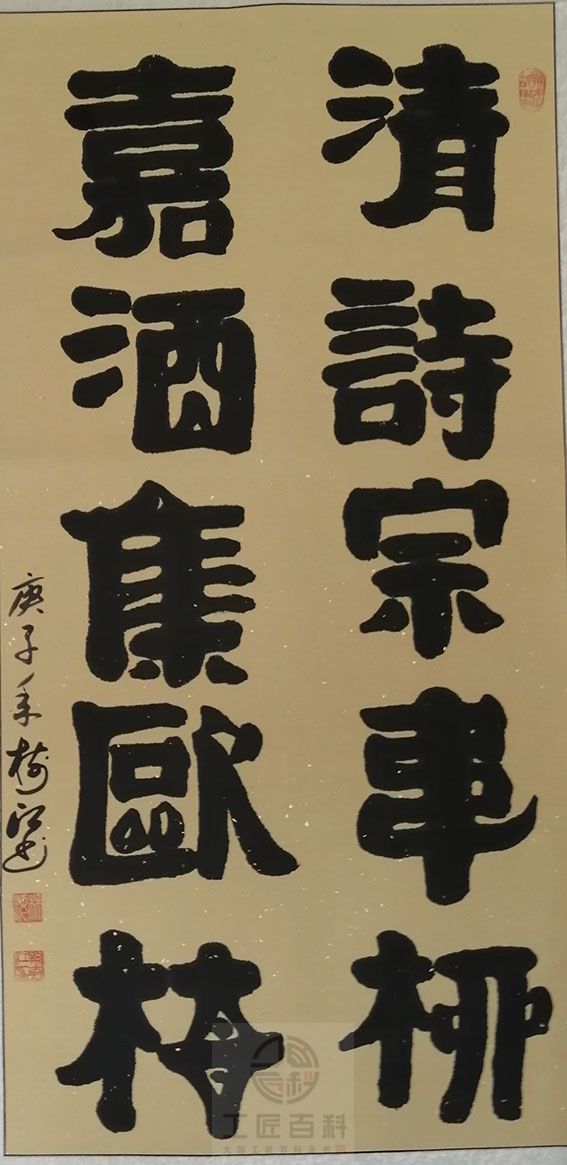 清詩宗韋柳
嘉酒集歐梅
庚子年樹江书
工匠百科